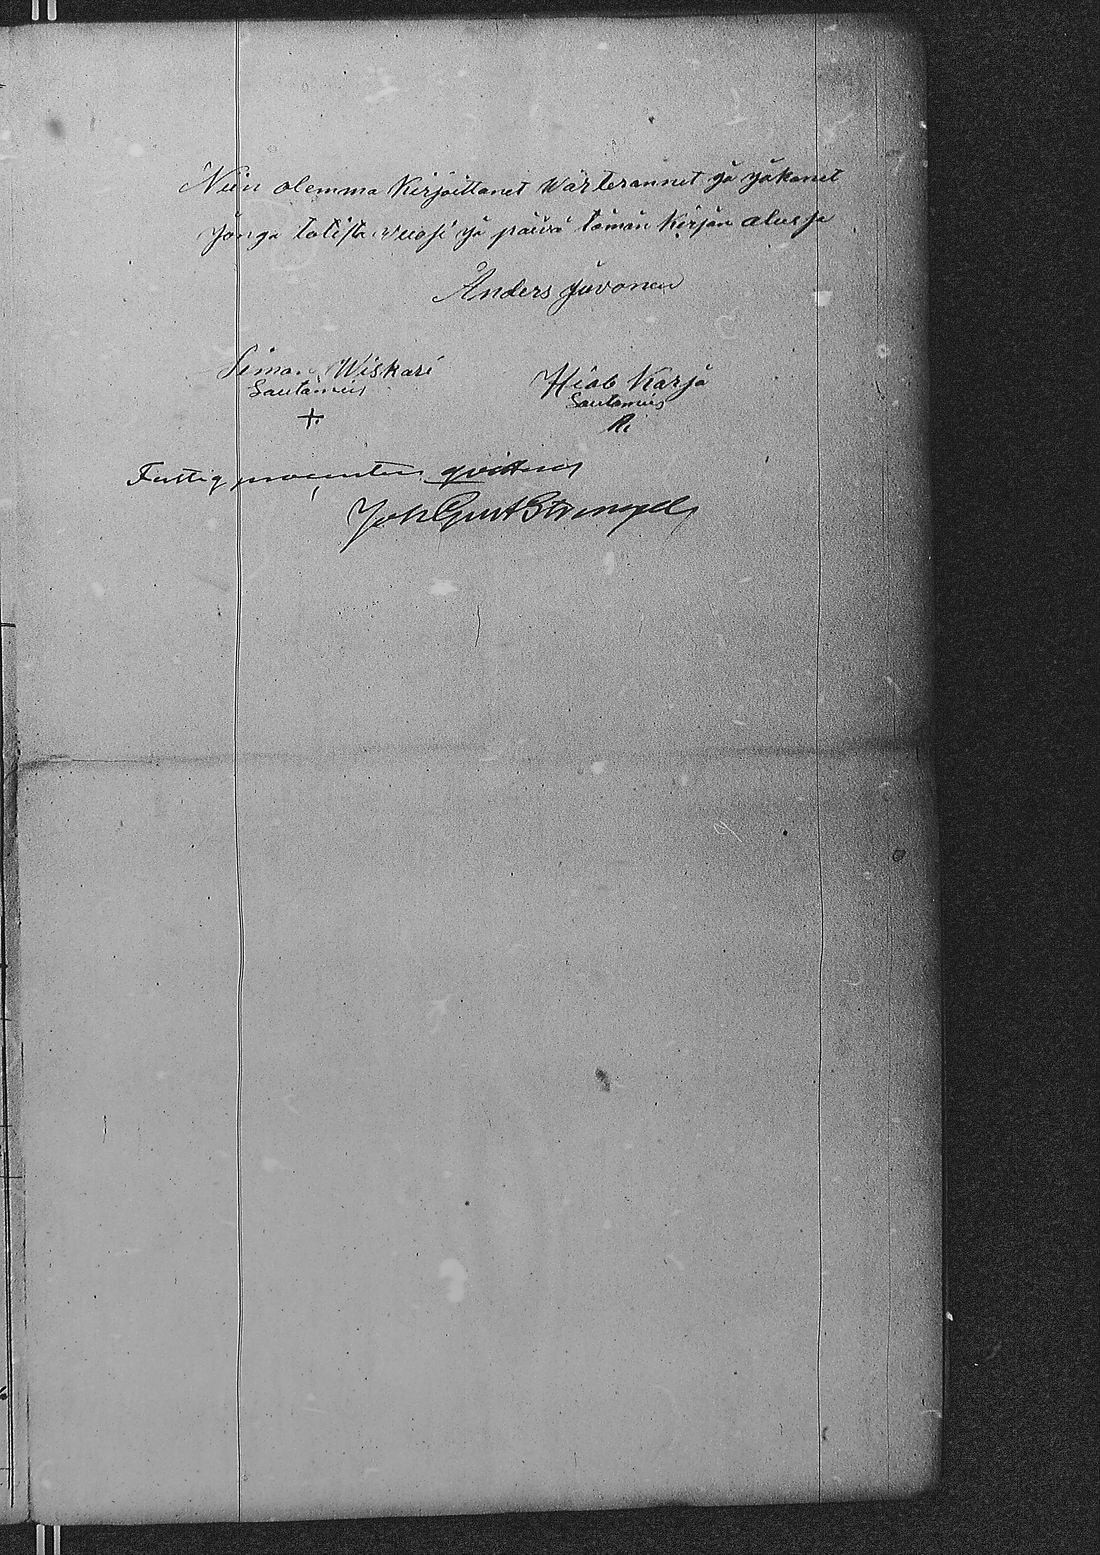 Niin olemma Kirjoittanet Wärterannet ja jakanet
jonga totista vuosi ja päivä tämän Kirjan alussa
Anders Juvonen
Simon Wiskari
Lautamies
+
Hiob Karja
Lautamies
Fattig procenten qvitteras
Joh Gust Strengell